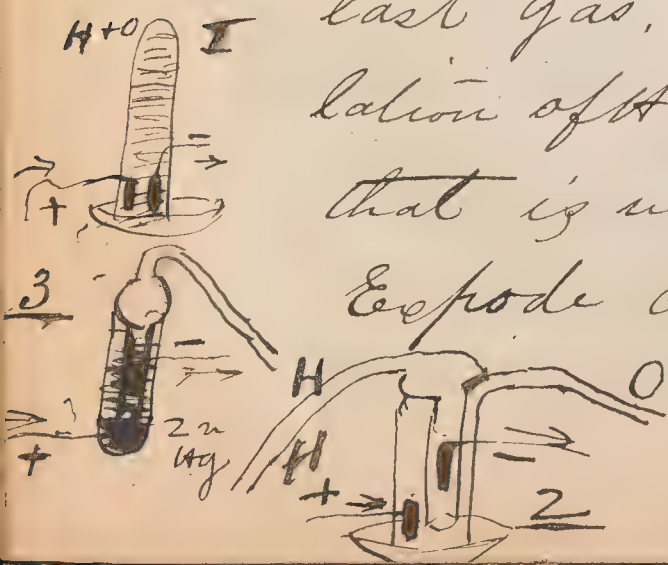 H+O I
last gas,
−
lation of H
+
that is
3
Expode
−
H
O
+
Zn
Hg
H
+
−
2